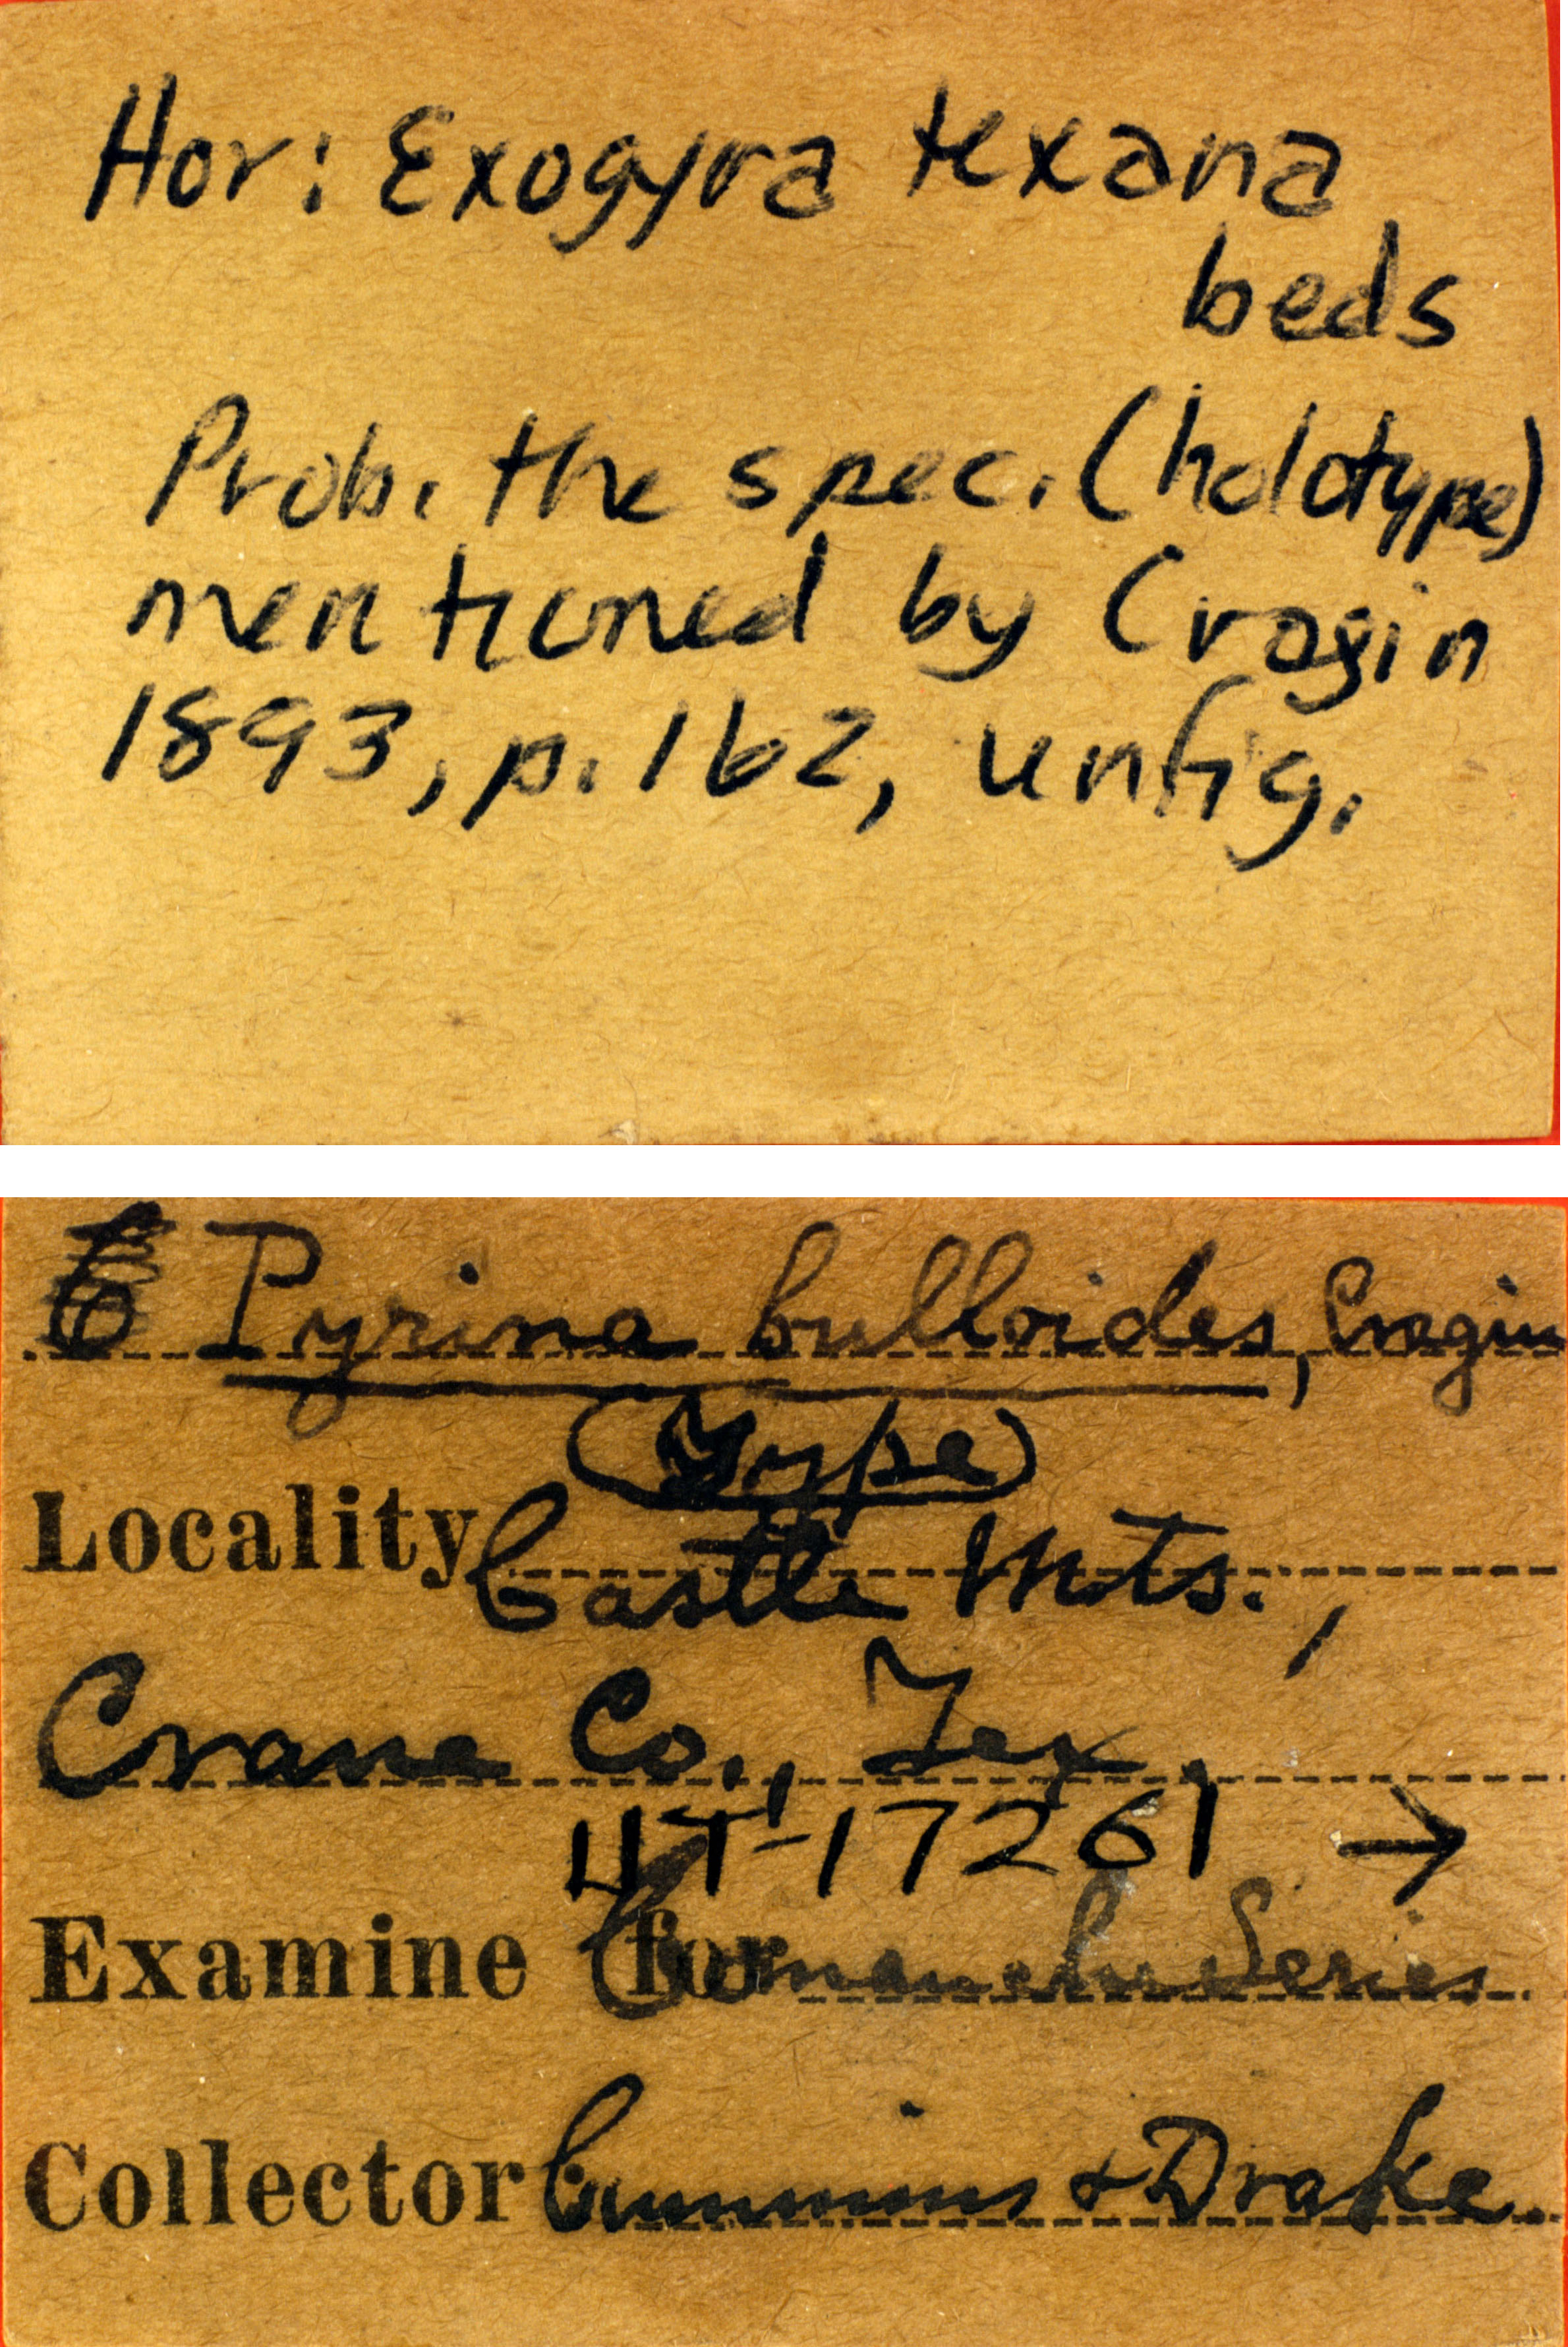 Hor: Exogyra texana
beds
Prob. the spec. (holotype)
mentioned by Cragin
1893, p. 162, unfig.
Pyrina bulloides, Cragin
(Type)
Locality Castle Mts.,
Crane Co., Tex.
UT-17261 →
Examine for Comanche Series.
Collector Cummins & Drake.